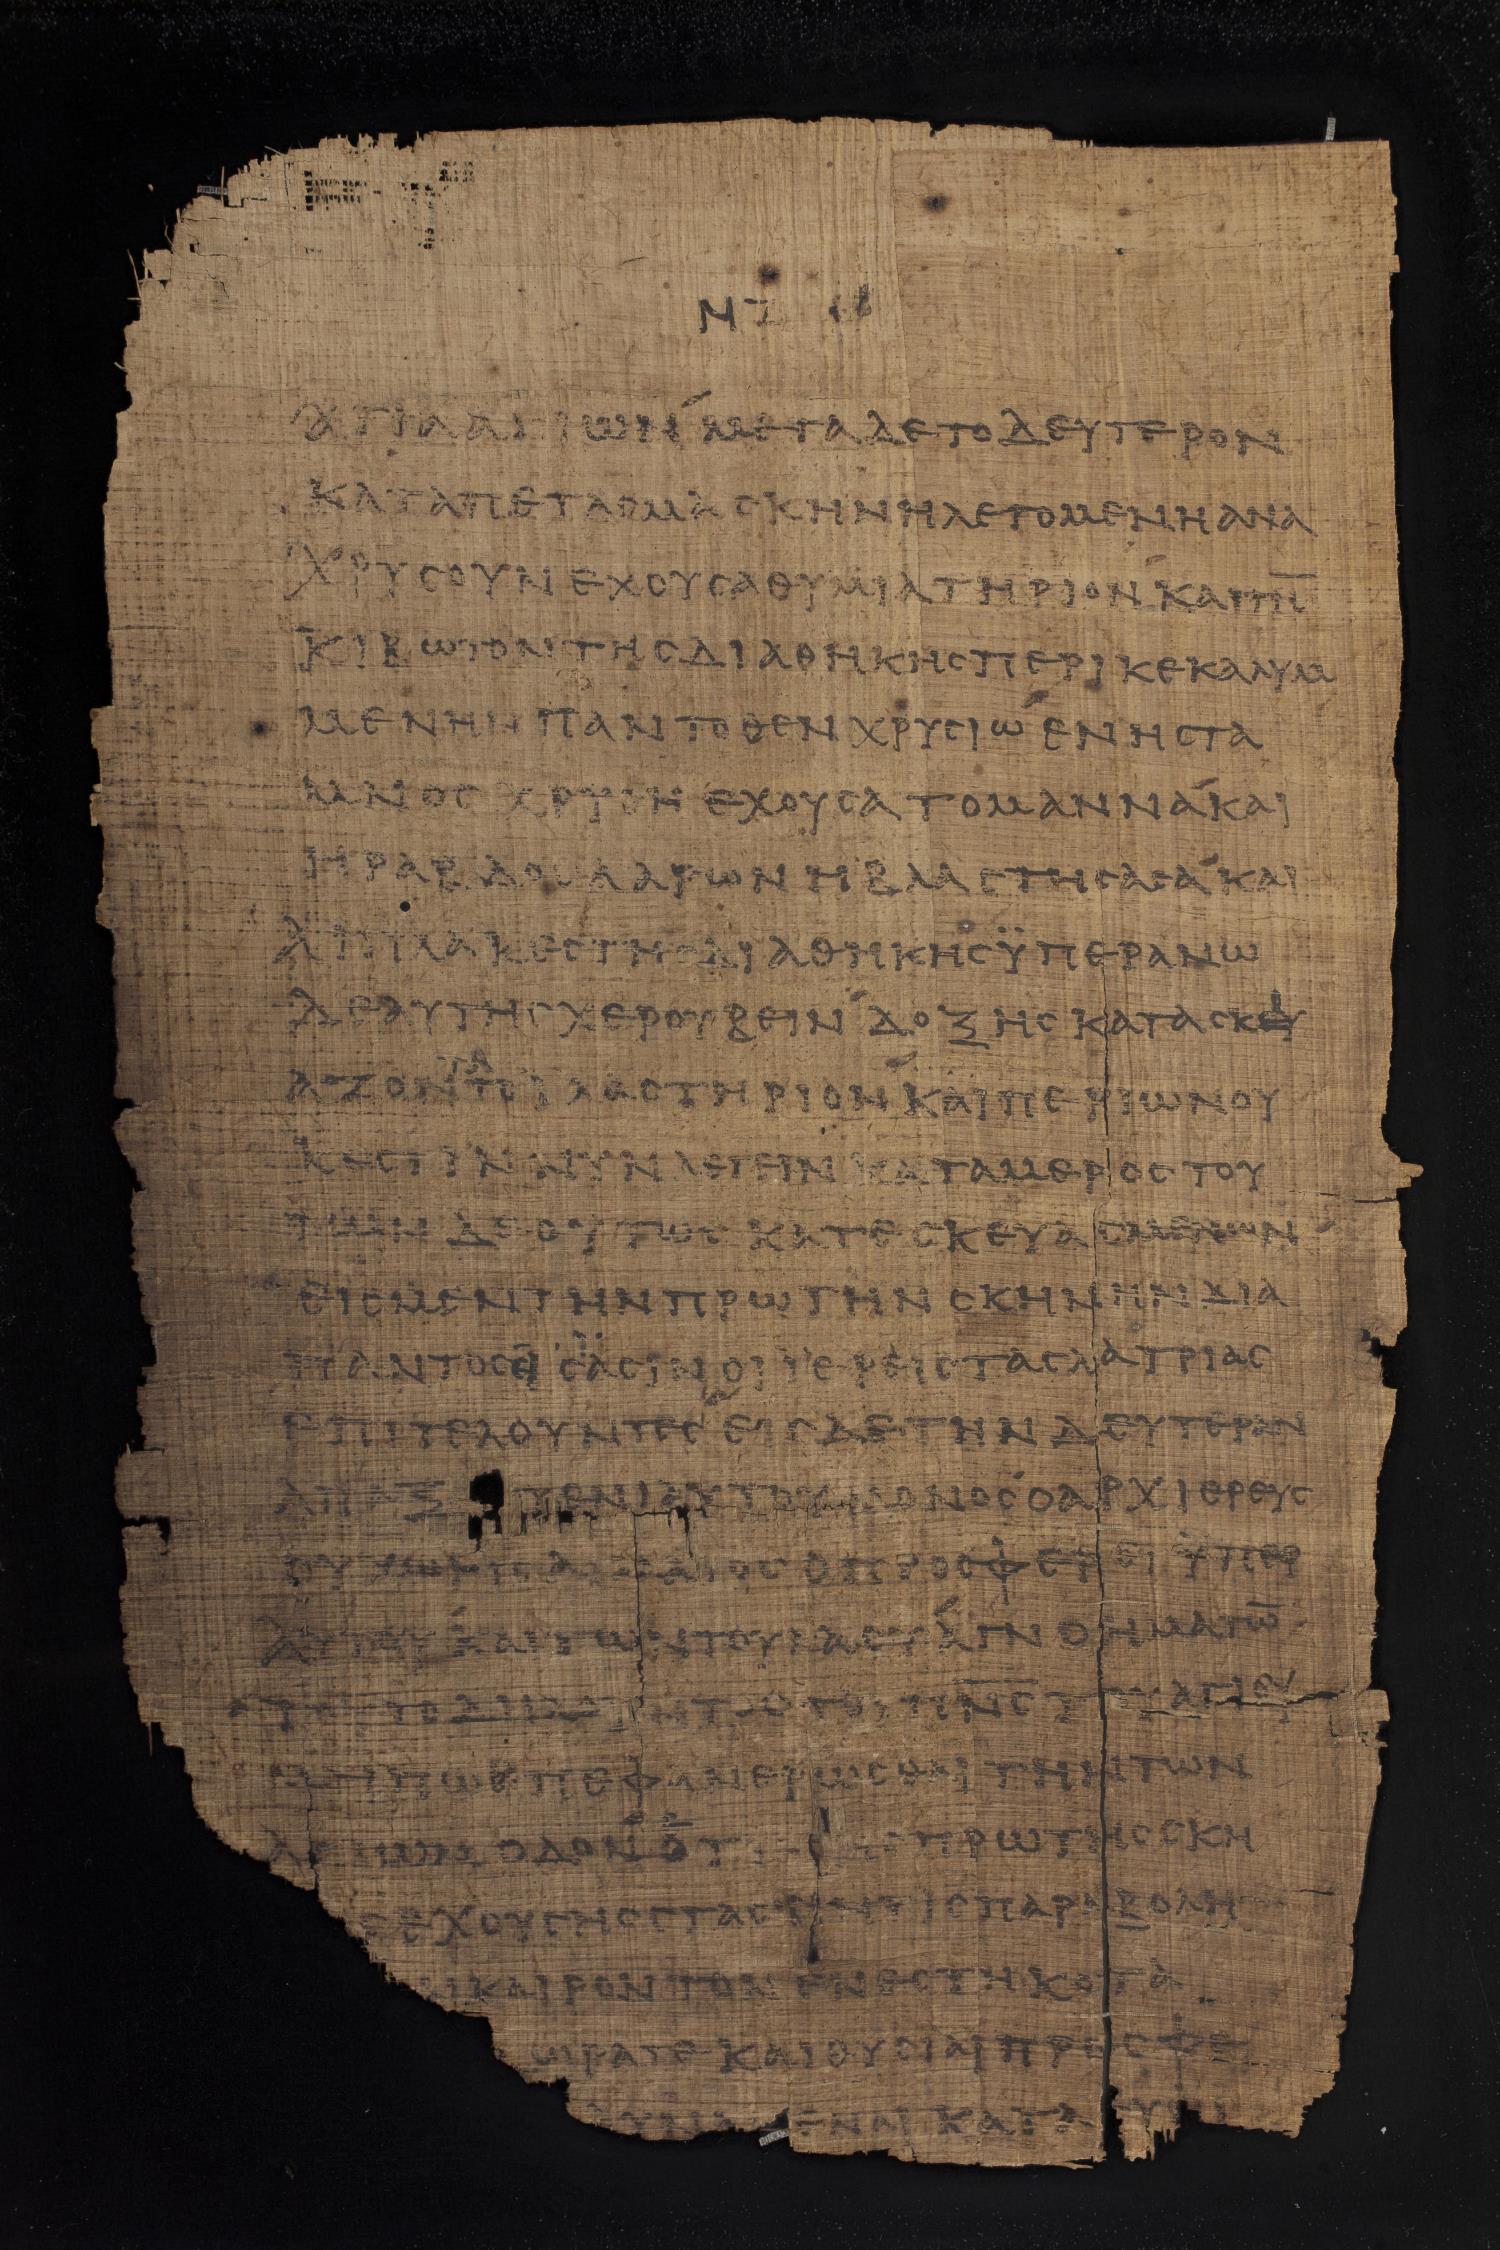 ΝΖ
ΑΓΙΑ ΑΓΙΩΝ ΜΕΤΑΔΕΤΟΔΕΥΤΕΡΟΝ
ΚΑΤΑΠΕΤΑϹΜΑ ϹΚΗΝΗΛΕΓΟΜΕΝΗΑΝΑ
ΧΡΥϹΟΥΝ ΕΧΟΥϹΑΘΥΜΙΑΤΗΡΙΟΝ ΚΑΙΤΗ̅
ΚΙΒΩΤΟΝΤΗϹΔΙΑΘΗΚΗϹΠΕΡΙΚΕΚΑΛΥΜ
ΜΕΝΗΝ ΠΑΝΤΟΘΕΝ ΧΡΥϹΙΩ ΕΝΗϹΤΑ
ΜΝΟϹ ΧΡΥϹΗ ΕΧΟΥϹΑ ΤΟΜΑΝΝΑ ΚΑΙ
ΗΡΑΒΔΟϹ ΑΑΡΩΝ ΗΒΛΑϹΤΗϹΑϹΑ ΚΑΙ
ΑΙΠΛΑΚΕϹΤΗϹΔΙΑΘΗΚΗϹ ΫΠΕΡΑΝΩ
ΔΕΑΥΤΗϹΧΕΡΟΥΒΕΙΝ ΔΟΞΗϹ ΚΑΤΑϹΚΕΥ
ΑΖΟΝΤΑ ΤΟΙΛΑϹΤΗΡΙΟΝ ΚΑΙΠΕΡΙΩΝΟΥ
ΚΕϹΤΙΝ ΝΥΝ ΛΕΓΕΙΝ ΚΑΤΑΜΕΡΟϹ ΤΟΥ
ΤΩΝ ΔΕ ΟΥΤΩϹ ΚΑΤΕϹΚΕΥΑϹΜΕΝΩΝ
ΕΙϹΜΕΝΤΗΝΠΡΩΤΗΝ ϹΚΗΝΗΝ ΔΙΑ
ΠΑΝΤΟϹΕΙϹΑϹΙΝ ΟΙΙΕΡΕΙϹΤΑϹΛΑΤΡΙΑϹ
ΕΠΙΤΕΛΟΥΝΤΕϹ ΕΙϹΔΕΤΗΝ ΔΕΥΤΕΡΑΝ
ΑΠΑΞ ΤΟΥΕΝΙΑΥΤΟΥ ΜΟΝΟϹ ΟΑΡΧΙΕΡΕΥϹ
ΟΥ ΧΩΡΙϹ ΑΙΜΑΤΟϹ ΟΠΡΟϹΦΕΡΕΙ ΫΠΕΡ
ΑΥΤΟΥ ΚΑΙΤΩΝΤΟΥΛΑΟΥ ΑΓΝΟΗΜΑΤΩ̅
ΤΟΥ Π̅Ν̅Ϲ̅ ΤΟΥΑΓΙΟΥ
ΜΗΠΩ ΠΕΦΑΝΕΡΩϹΘΑΙ ΤΗΝΤΩΝ
ΟΔΟΝ ΠΡΩΤΗϹ ϹΚΗ
ΕΧΟΥϹΗϹ ϹΤΑϹΙΝ ΗΤΙϹ ΠΑΡΑΒΟΛΗ
ΚΑΙΡΟΝ ΤΟΝ ΕΝΕϹΤΗΚΟΤΑ
ΩΡΑΤΕ ΚΑΙΘΥϹΙΑΙΠΡΟϹΦΕ
ΚΑΤΑ